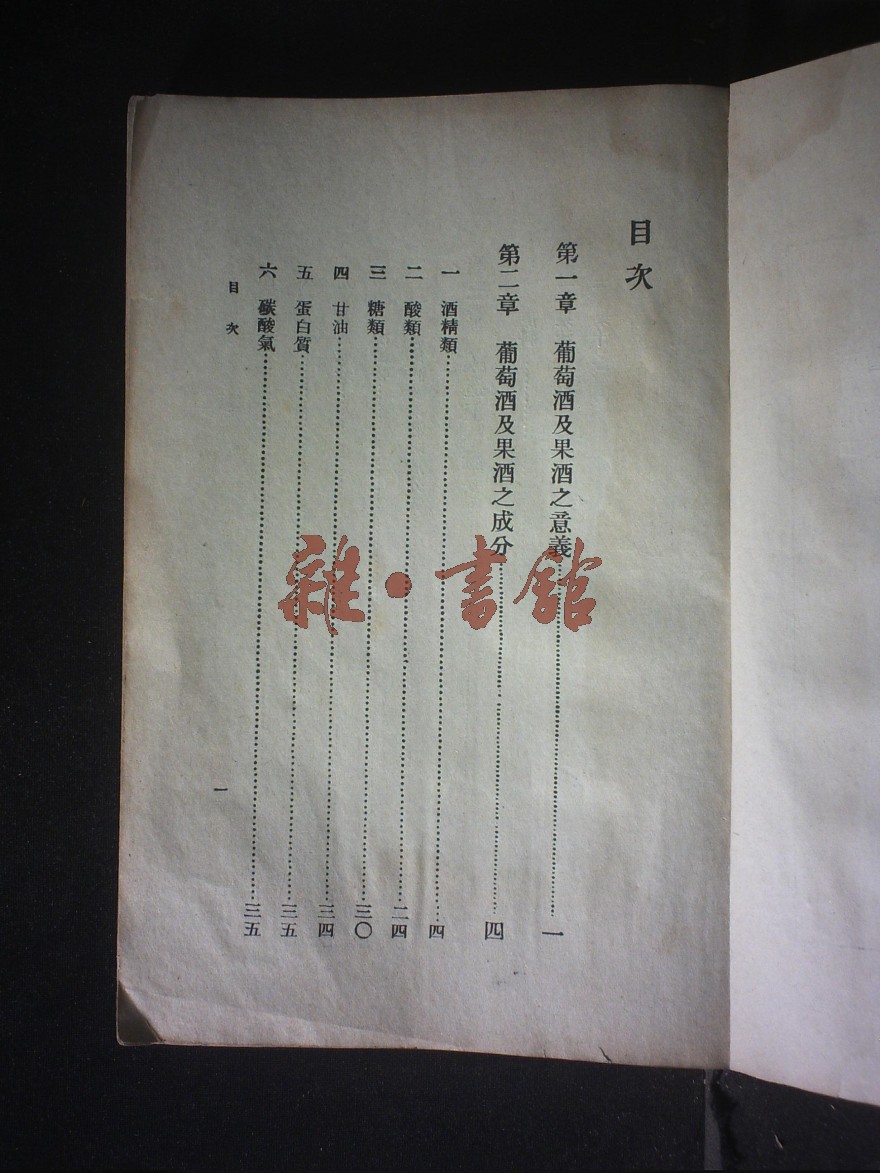 目次
第一章 葡萄酒及果酒之意義……一
第二章 葡萄酒及果酒之成分……四
一 酒精類……四
二 酸類……二四
三 糖類……三〇
四 甘油……三四
五 蛋白質……三五
六 碳酸氣……三五
目次
一
雜·書館